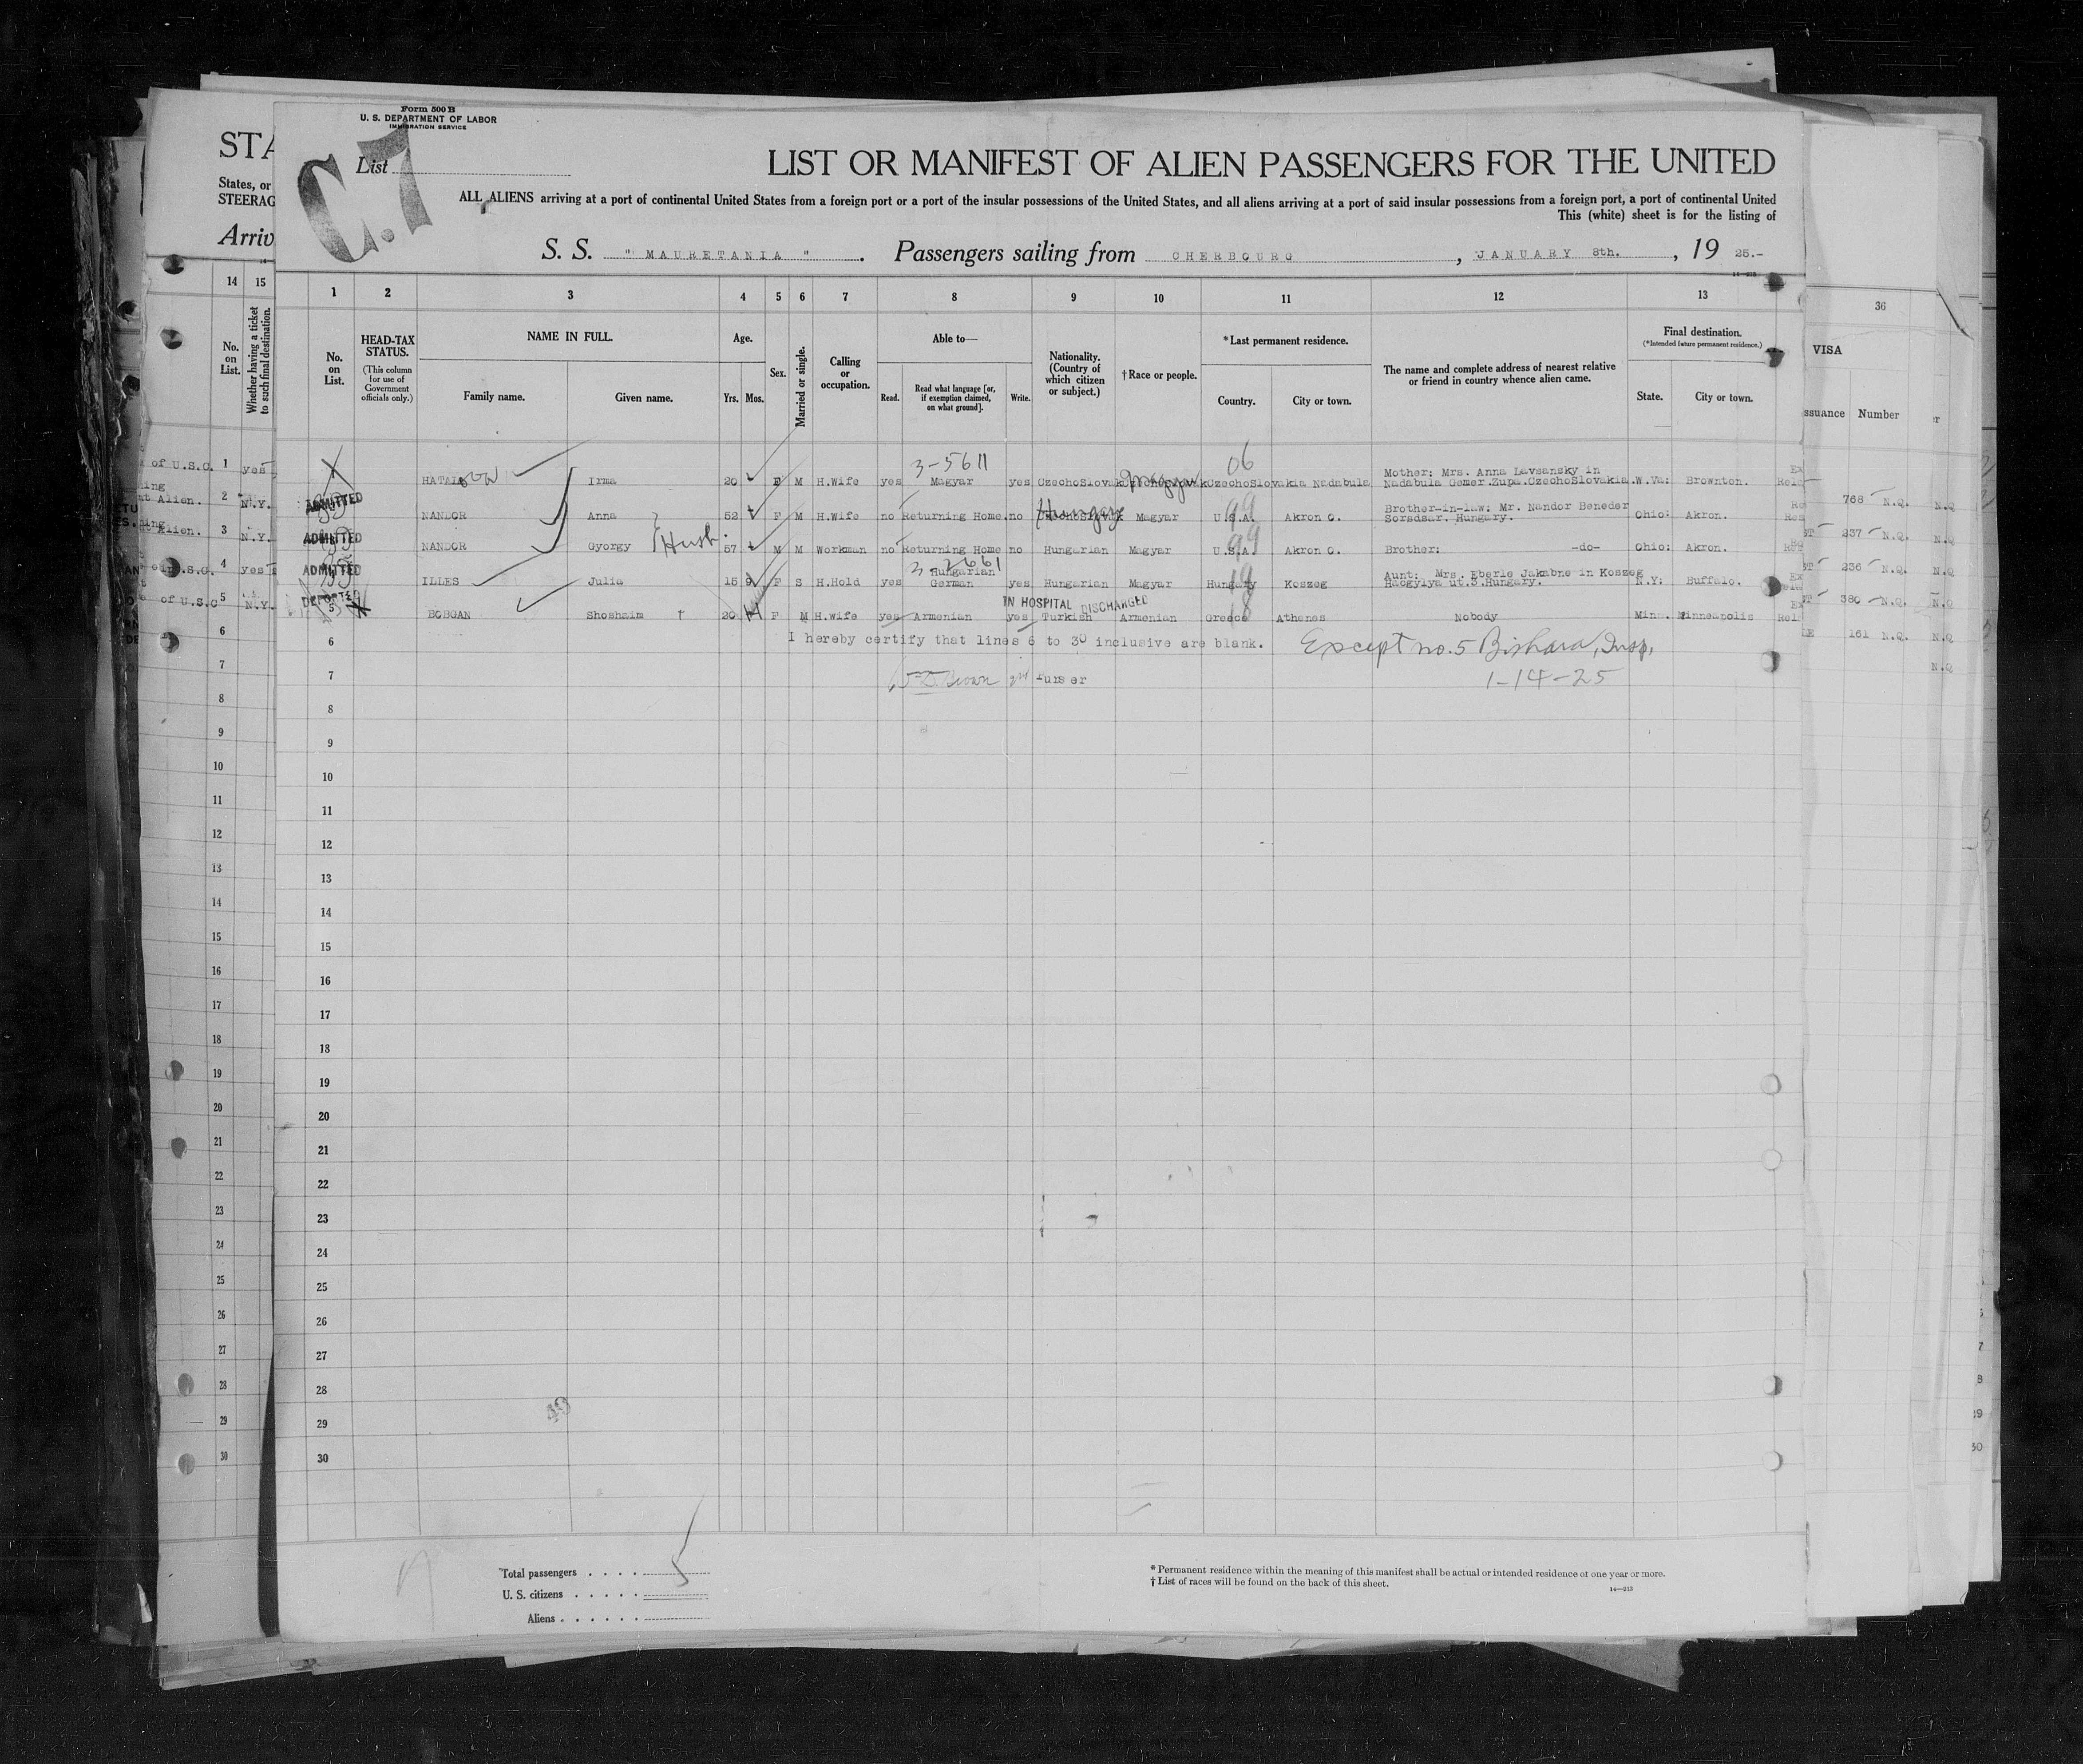 Form 500 B
U. S. DEPARTMENT OF LABOR
IMMIGRATION SERVICE
C.7
List
LIST OR MANIFEST OF ALIEN PASSENGERS FOR THE UNITED
ALL ALIENS arriving at a port of continental United States from a foreign port or a port of the insular possessions of the United States, and all aliens arriving at a port of said insular possessions from a foreign port, a port of continental United
This (white) sheet is for the listing of
S. S. "MAURETANIA". Passengers sailing from CHERBOURG, JANUARY 8th., 19 25.-
STA
States, or
STEERAG
Arriv
14 15
No. on List.
Whether having a ticket to such final destination.
1 2 3 4 5 6 7 8 9 10 11 12 13
36
No. on List.
HEAD-TAX STATUS.
(This column for use of Government officials only.)
NAME IN FULL.
Family name. Given name.
Age.
Yrs. Mos.
Sex.
Married or single.
Calling or occupation.
Able to—
Read. Read what language [or, if exemption claimed, on what ground]. Write.
Nationality. (Country of which citizen or subject.)
†Race or people.
*Last permanent residence.
Country. City or town.
The name and complete address of nearest relative or friend in country whence alien came.
Final destination.
(*Intended future permanent residence.)
State. City or town.
VISA
ssuance Number
of U.S.C. 1 yes
3-5611 06
Irma 20 F M H.Wife yes Magyar yes CzechoSlovak Magyar CzechoSlovakia Nadabula Mother: Mrs. Anna Lavsansky in Nadabula Gemer.Zupa.CzechoSlovakia. W.Va: Brownton.
t Alien. 2 N.Y.
ADMITTED NANDOR Anna 52 F M H.Wife no Returning Home. no Hungary Magyar U.S.A. 99 Akron O. Brother-in-law: Mr. Nandor Beneder Sorsdsar. Hungary. Ohio: Akron. 768 N.Q. N.Q
Alien. 3 N.Y.
ADMITTED NANDOR Gyorgy Husb. 57 M M Workman no Returning Home no Hungarian Magyar U.S.A. 99 Akron O. Brother: -do- Ohio: Akron. 237 N.Q. N.Q
4 yes
ADMITTED ILLES Julia 15 9 F S H.Hold yes 3-2661 Hungarian German yes Hungarian Magyar Hungary Koszeg Aunt: Mrs. Eberle Jakabne in Koszeg ut.3.Hungary. N.Y: Buffalo. 236 N.Q. N.Q
of U.S.C 5 N.Y.
IN HOSPITAL DISCHARGED
DEPORTED 5 BOBGAN Shoshaim † 20 F M H.wife yes Armenian yes Turkish Armenian Greece 18 Athenes Nobody Minn. Minneapolis 380 N.Q. N.Q
6 I hereby certify that lines 6 to 30 inclusive are blank. Except no. 5 Bishara, Insp. 161 N.Q. N.Q
7 Purser 1-14-25 N.Q
8
9
10
11
12
13
14
15
16
17
18
19
20
21
22
23
24
25
26
27
28
29
30
49
Total passengers . . . . 5
U. S. citizens . . . . .
Aliens . . . . . .
* Permanent residence within the meaning of this manifest shall be actual or intended residence of one year or more.
† List of races will be found on the back of this sheet.
14—213